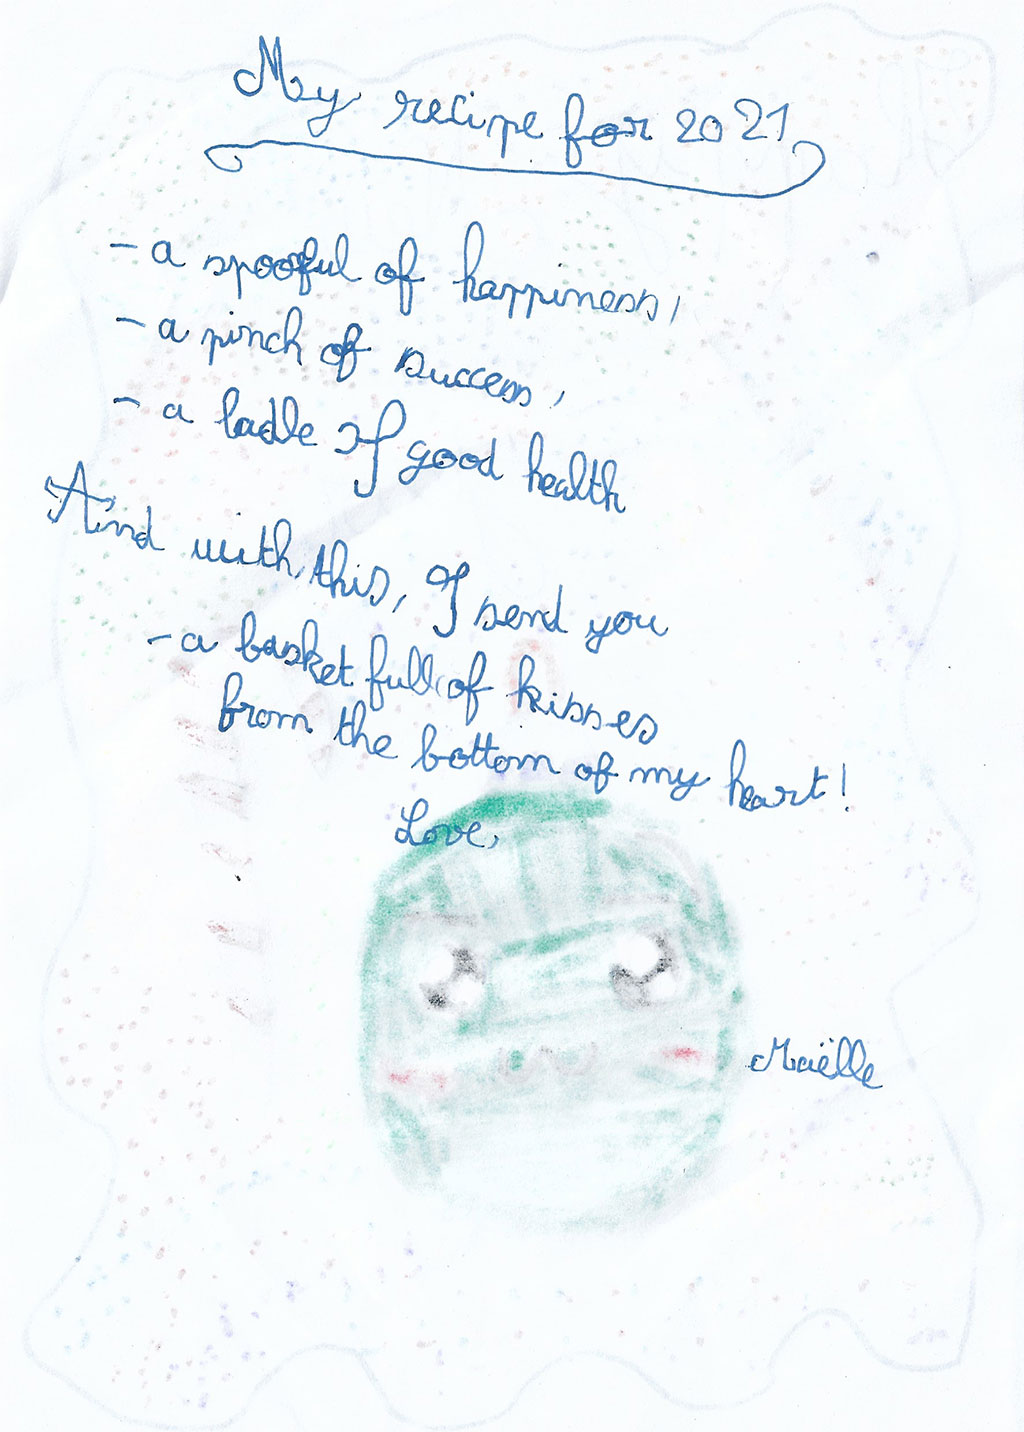 My recipe for 2021
- a spoonful of happiness,
- a pinch of success,
- a ladle of good health
And with this, I send you
- a basket full of kisses
from the bottom of my heart!
Love,
Maëlle